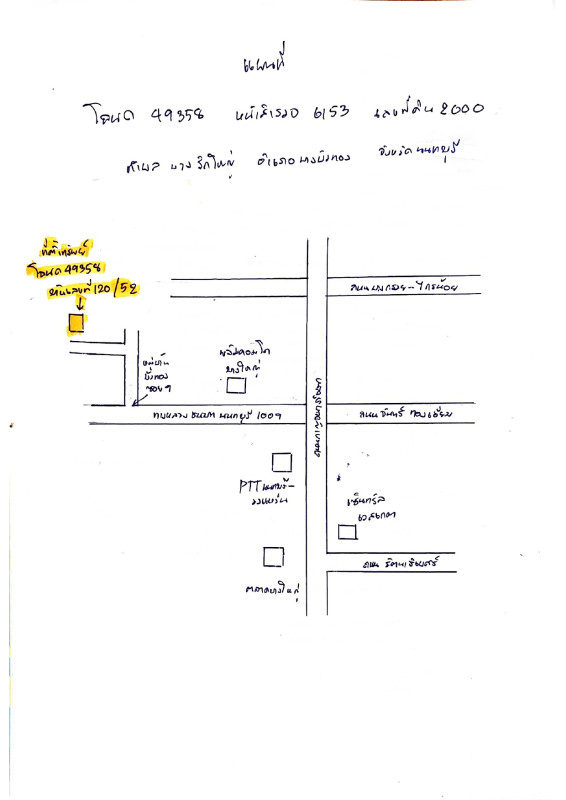 แผนที่
โฉนด 49358 หน้าสำรวจ 6153 เลขที่ดิน 2000
ตำบล บางรักใหญ่ อำเภอบางบัวทอง จังหวัดนนทบุรี
ที่ตั้งทรัพย์
โฉนด 49358
บ้านเลขที่ 120/52
ถนนบางกรวย-ไทรน้อย
หมู่บ้าน
บัวทอง
ซอย 9
พลัมคอนโด
บางใหญ่
ทางหลวงชนบท นนทบุรี 1009
ถนน จันทร์ทองเอี่ยม
ถนนกาญจนาภิเษก
PTT
เซ็นทรัล
เวสเกต
ถนน รัตนาธิเบศร์
ตลาดบางใหญ่